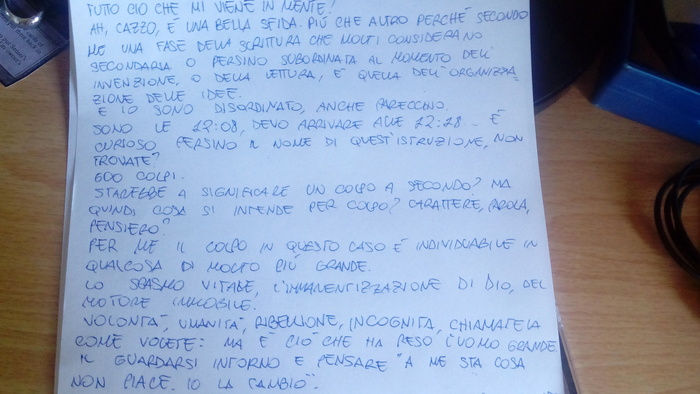 TUTTO CIÒ CHE MI VIENE IN MENTE!
AH, CAZZO, È UNA BELLA SFIDA. PIÙ CHE ALTRO PERCHÉ SECONDO
ME UNA FASE DELLA SCRITTURA CHE MOLTI CONSIDERANO
SECONDARIA O PERSINO SUBORDINATA AL MOMENTO DELL'
INVENZIONE, O DELLA LETTURA, È QUELLA DELL'ORGANIZZA
ZIONE DELLE IDEE.
E IO SONO DISORDINATO, ANCHE PARECCHIO.
SONO LE 22:08, DEVO ARRIVARE ALLE 22:18. È
CURIOSO PERSINO IL NOME DI QUEST'ISTRUZIONE, NON
TROVATE?
600 COLPI.
STAREBBE A SIGNIFICARE UN COLPO A SECONDO? MA
QUINDI COSA SI INTENDE PER COLPO? CARATTERE, PAROLA,
PENSIERO?
PER ME IL COLPO IN QUESTO CASO È INDIVIDUABILE IN
QUALCOSA DI MOLTO PIÙ GRANDE.
LO SPASMO VITALE, L'IMMANENTIZZAZIONE DI DIO, DEL
MOTORE IMMOBILE.
VOLONTÀ, UMANITÀ, RIBELLIONE, INCOGNITA, CHIAMATELA
COME VOLETE: MA È CIÒ CHE HA RESO L'UOMO GRANDE
IL GUARDARSI INTORNO E PENSARE "A ME STA COSA
NON PIACE. IO LA CAMBIO".